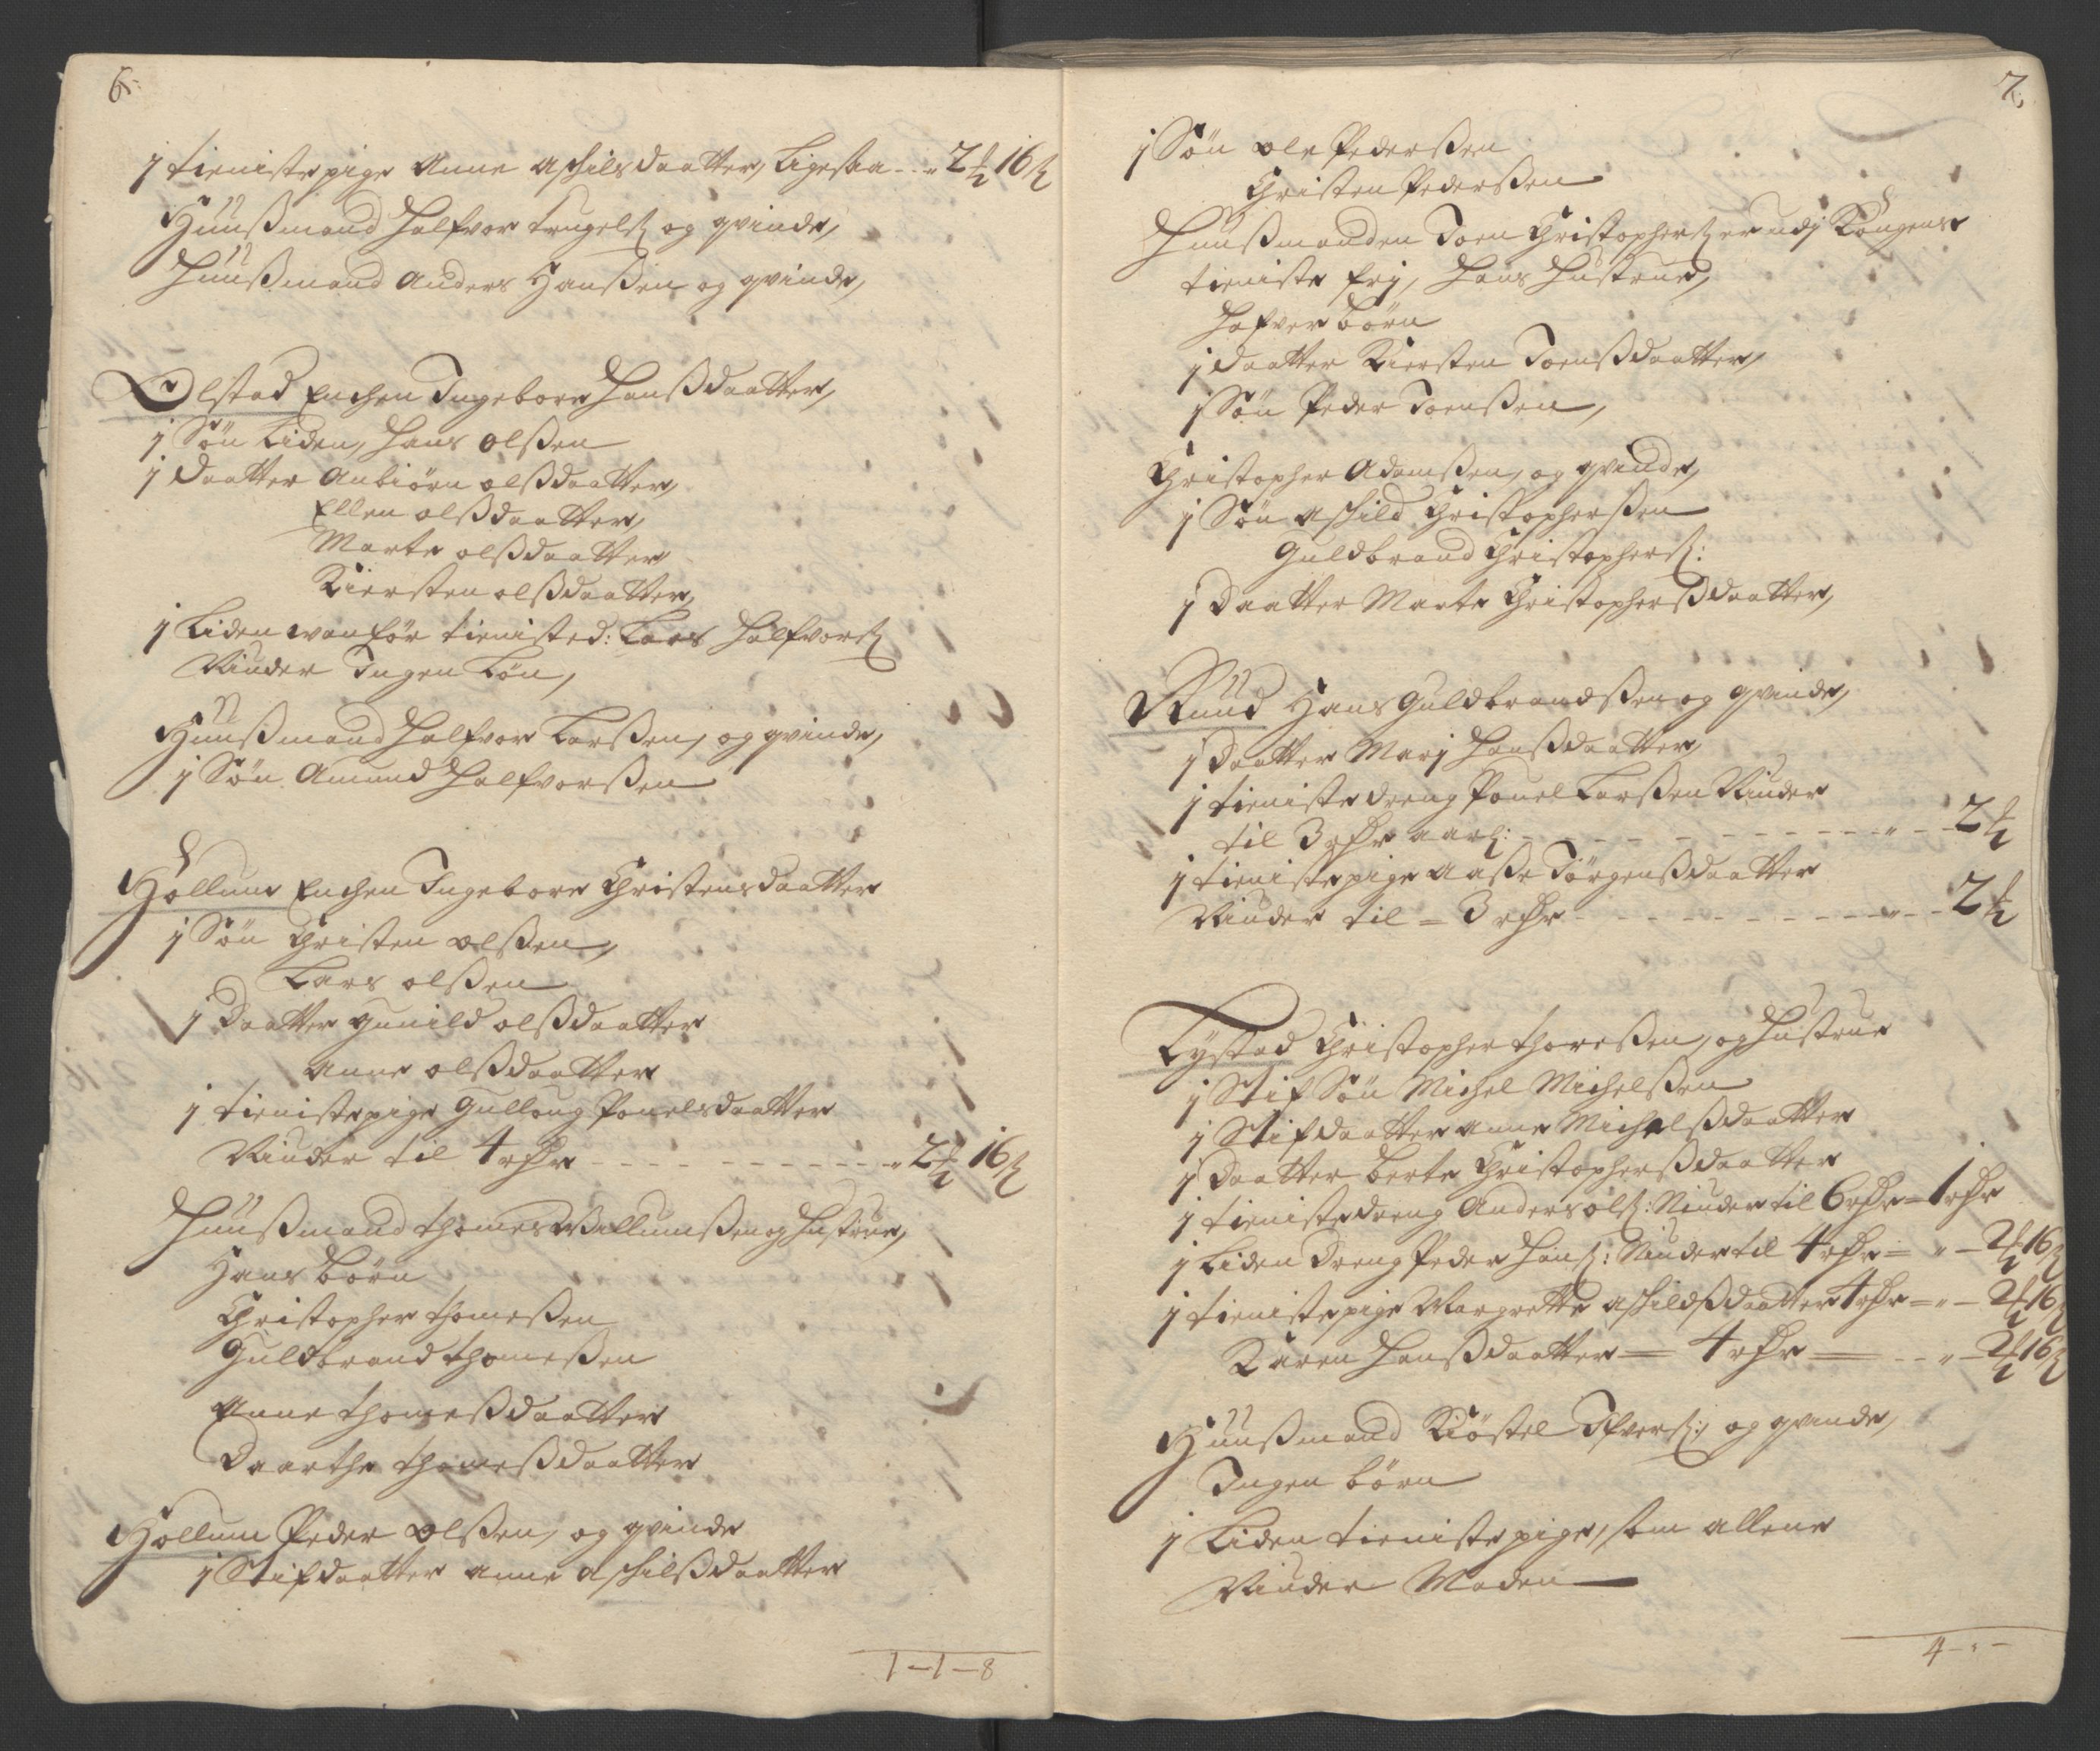 6.
1 tieniste pige Anne Aschilsdaatter, Ligesaa - - " 2 ½ 16 ß
Huußmand Halfvor Trugelß og qvinde,
Huußmand Anders Hanßen og qvinde,
Ølstad Enchen Ingebore Hanßdaatter,
1 Søn Liden, Hans Olßen
1 Daatter Anbiørn Olßdaatter,
Ellen Olßdaatter,
Marte Olßdaatter
Kiersten Olßdaatter,
1 Liden wanför tienisted: Lars Halfvorß
Niuder Ingen Løn,
Huußmand Halfvor Larßen, og qvinde,
1 Søn Amund Halfvorßen
Hollum Enchen Ingebore Christensdaatter
1 Søn Christen Olßen,
Lars Olßen
1 Daatter Gunild Olßdaatter
Anne Olßdaatter
1 tieniste pige Gulloug Pouelsdaatter
Niuder til 4 rdr - - - - - - - - - - " 2 ½ 16 ß
Huußmand Thomes Willumßen og Hustrue,
Hans børn
Christopher Thomeßen
Guldbrand Thomeßen
Anne Thomeßdaatter
Daarthe Thomeßdaatter
Hollum Peder Olßen, og qvinde
1 Stifdaatter Anne Aschilßdaatter
1 - 1 - 8
7.
1 Søn Ole Pederßen
Christen Pederßen
Huußmanden Joen Christopherß er udj Kongens
tieniste frj, Hans Hustrue,
Hafver børn
1 Daatter Kiersten Joenßdaatter,
1 Søn Peder Joenßen,
Christopher Adamßen, og qvinde,
1 Søn Aschild Christopherßen
Guldbrand Christopherß:
1 Daatter Marte Christopherßdaatter,
Ruud Hans Guldbrandßen og qvinde,
1 Daatter Marj Hanßdaatter
1 tieniste dreng Pouel Larßen Niuder
til 3 rdr aarl: - - - - - - - - - - " - - 2 ½
1 tieniste pige Aaße Jörgenßdaatter
Niuder til = 3 rdr - - - - - - - - - " - - 2 ½
Lystad Christopher Thoreßen, og Hustrue
1 Stif Søn Michel Michelßen
1 Stifdaatter Anne Michelßdaatter
1 Daatter Berte Christopherßdaatter
1 tieniste dreng Anders Olß: Niuder til 6 rdr = 1 rdr
1 Liden Dreng Peder Hanß: Niuder til 4 rdr = " - 2 ½ 16 ß
1 tieniste pige Margrette Aschildßdaatter 4 rdr = " - 2 ½ 16 ß
Karen Hanßdaatter = 4 rdr = - - " - 2 ½ 16 ß
Huußmand Kiöstel Ifverß: og qvinde,
Ingen børn
1 Liden tieniste pige, som allene
Niuder Maden
4 - " -